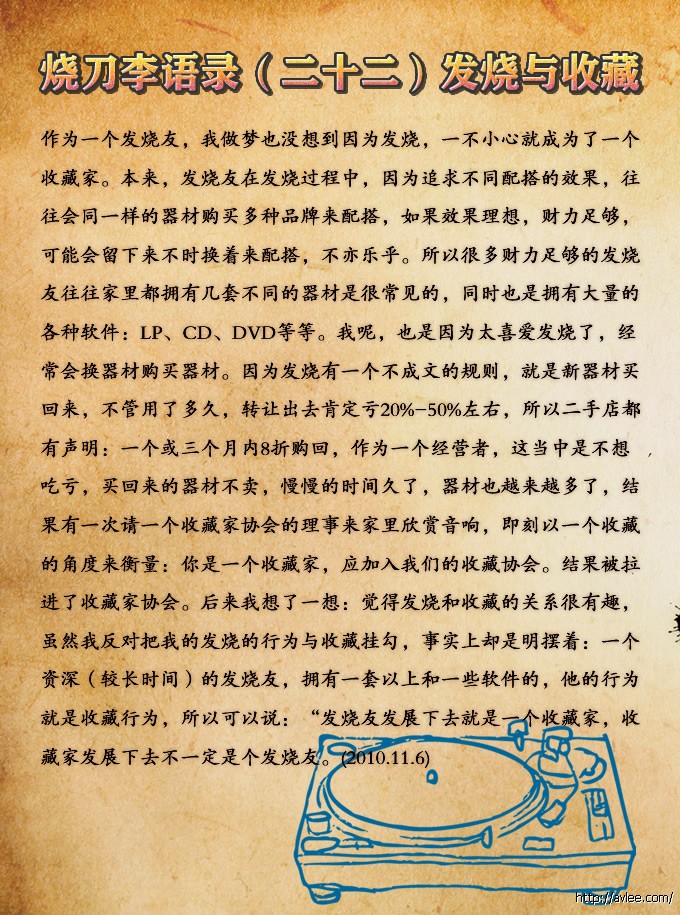 烧刀李语录（二十二）发烧与收藏
作为一个发烧友，我做梦也没想到因为发烧，一不小心就成为了一个
收藏家。本来，发烧友在发烧过程中，因为追求不同配搭的效果，往
往会同一样的器材购买多种品牌来配搭，如果效果理想，财力足够，
可能会留下来不时换着来配搭，不亦乐乎。所以很多财力足够的发烧
友往往家里都拥有几套不同的器材是很常见的，同时也是拥有大量的
各种软件：LP、CD、DVD等等。我呢，也是因为太喜爱发烧了，经
常会换器材购买器材。因为发烧有一个不成文的规则，就是新器材买
回来，不管用了多久，转让出去肯定亏20%-50%左右，所以二手店都
有声明：一个或三个月内8折购回，作为一个经营者，这当中是不想
吃亏，买回来的器材不卖，慢慢的时间久了，器材也越来越多了，结
果有一次请一个收藏家协会的理事来家里欣赏音响，即刻以一个收藏
的角度来衡量：你是一个收藏家，应加入我们的收藏协会。结果被拉
进了收藏家协会。后来我想了一想：觉得发烧和收藏的关系很有趣，
虽然我反对把我的发烧的行为与收藏挂勾，事实上却是明摆着：一个
资深（较长时间）的发烧友，拥有一套以上和一些软件的，他的行为
就是收藏行为，所以可以说：“发烧友发展下去就是一个收藏家，收
藏家发展下去不一定是个发烧友。(2010.11.6)
http://avlee.com/